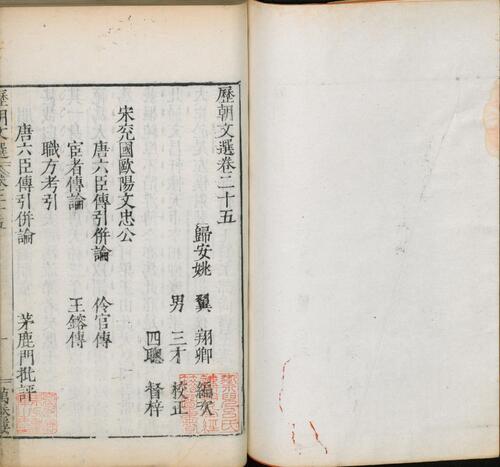 歷朝文選卷二十五
歸安姚 翼 翔卿 編次
男 三才 校正
四聰 督梓
宋兖國歐陽文忠公
唐六臣傳引併論 伶官傳
宦者傳論 王鎔傳
職方考引
唐六臣傳引併論 茅鹿門批評
歷朝文選